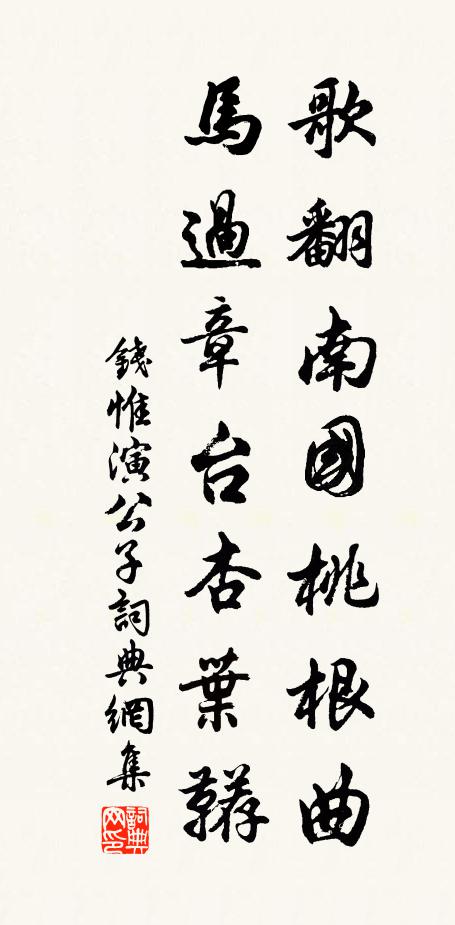 歌翻南國桃根曲
馬過章台杏葉韉
錢惟演公子詞典網集
詞典
网印